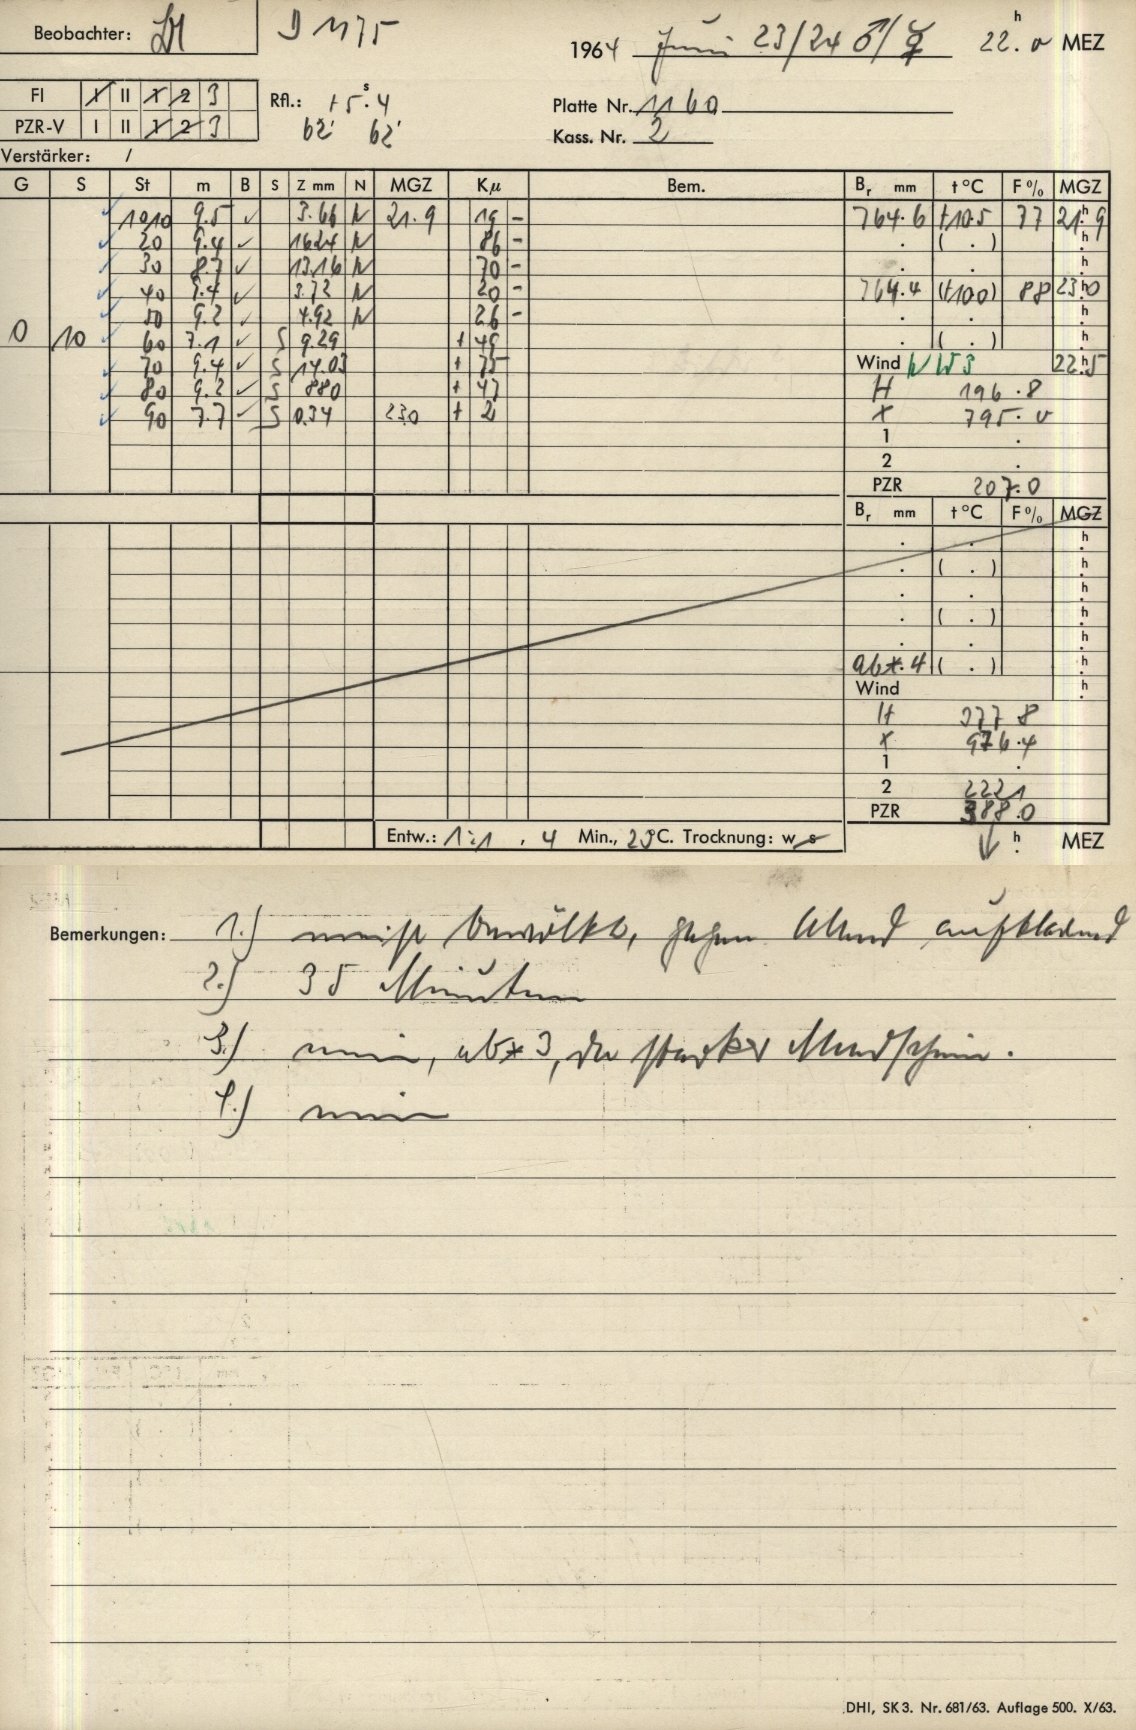 Beobachter:
D 1175
1964 Juni 23/24 ♂/☿ 22.0 h MEZ
FI I II 1 2 3
PZR-V I II 1 2 3
Rfl.: +5.s4
62' 62'
Platte Nr. 1160
Kass. Nr. 2
Verstärker: /
G S St m B S Z mm N MGZ Kμ Bem. Br mm t °C F % MGZ
1010 9.5 ✓ 3.66 N 21.9 19 – 764.6 +10.5 77 21.h9
20 9.4 ✓ 16.24 N 86 – . ( . ) h.
30 8.7 ✓ 13.16 N 70 – . . h.
40 9.4 ✓ 3.72 N 20 – 764.4 (+10.0) 88 23.h0
50 9.2 ✓ 4.92 N 26 – . . h.
0 10 60 7.1 ✓ S 9.29 + 49 . ( . ) h.
70 9.4 ✓ S 14.03 + 75 Wind NW 3 22.h5
80 9.2 ✓ S 880 + 47 H 196.8
90 7.7 ✓ S 0.34 23.0 + 2 X 795.0
1 .
2 .
PZR 207.0
Br mm t °C F % MGZ
. . h.
. ( . ) h.
. . h.
. ( . ) h.
. . h.
abx.4 ( . ) h.
Wind h.
H 377 8
X 976.4
1 .
2 2221
PZR 388.0
Entw.: 1:1 . 4 Min., 20°C. Trocknung: w s h. MEZ
Bemerkungen: 1.) meist bewölkt, gegen Abend aufklarend
2.) 35 Minuten
3.) nein, abx 3, da starker Mondschein.
4.) nein
DHI, SK 3. Nr. 681/63. Auflage 500. X/63.